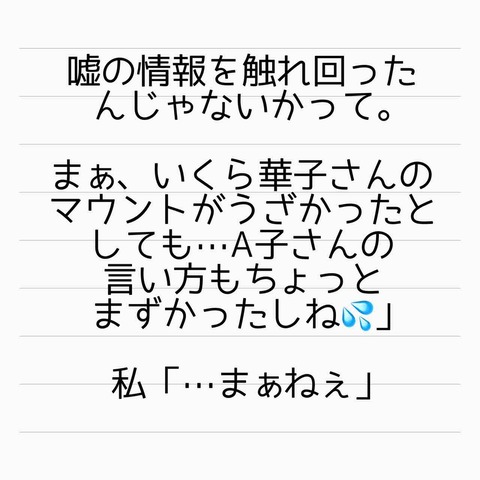 嘘の情報を触れ回った
んじゃないかって。
まぁ、いくら華子さんの
マウントがうざかったと
しても…A子さんの
言い方もちょっと
まずかったしね💦」
私「…まぁねぇ」